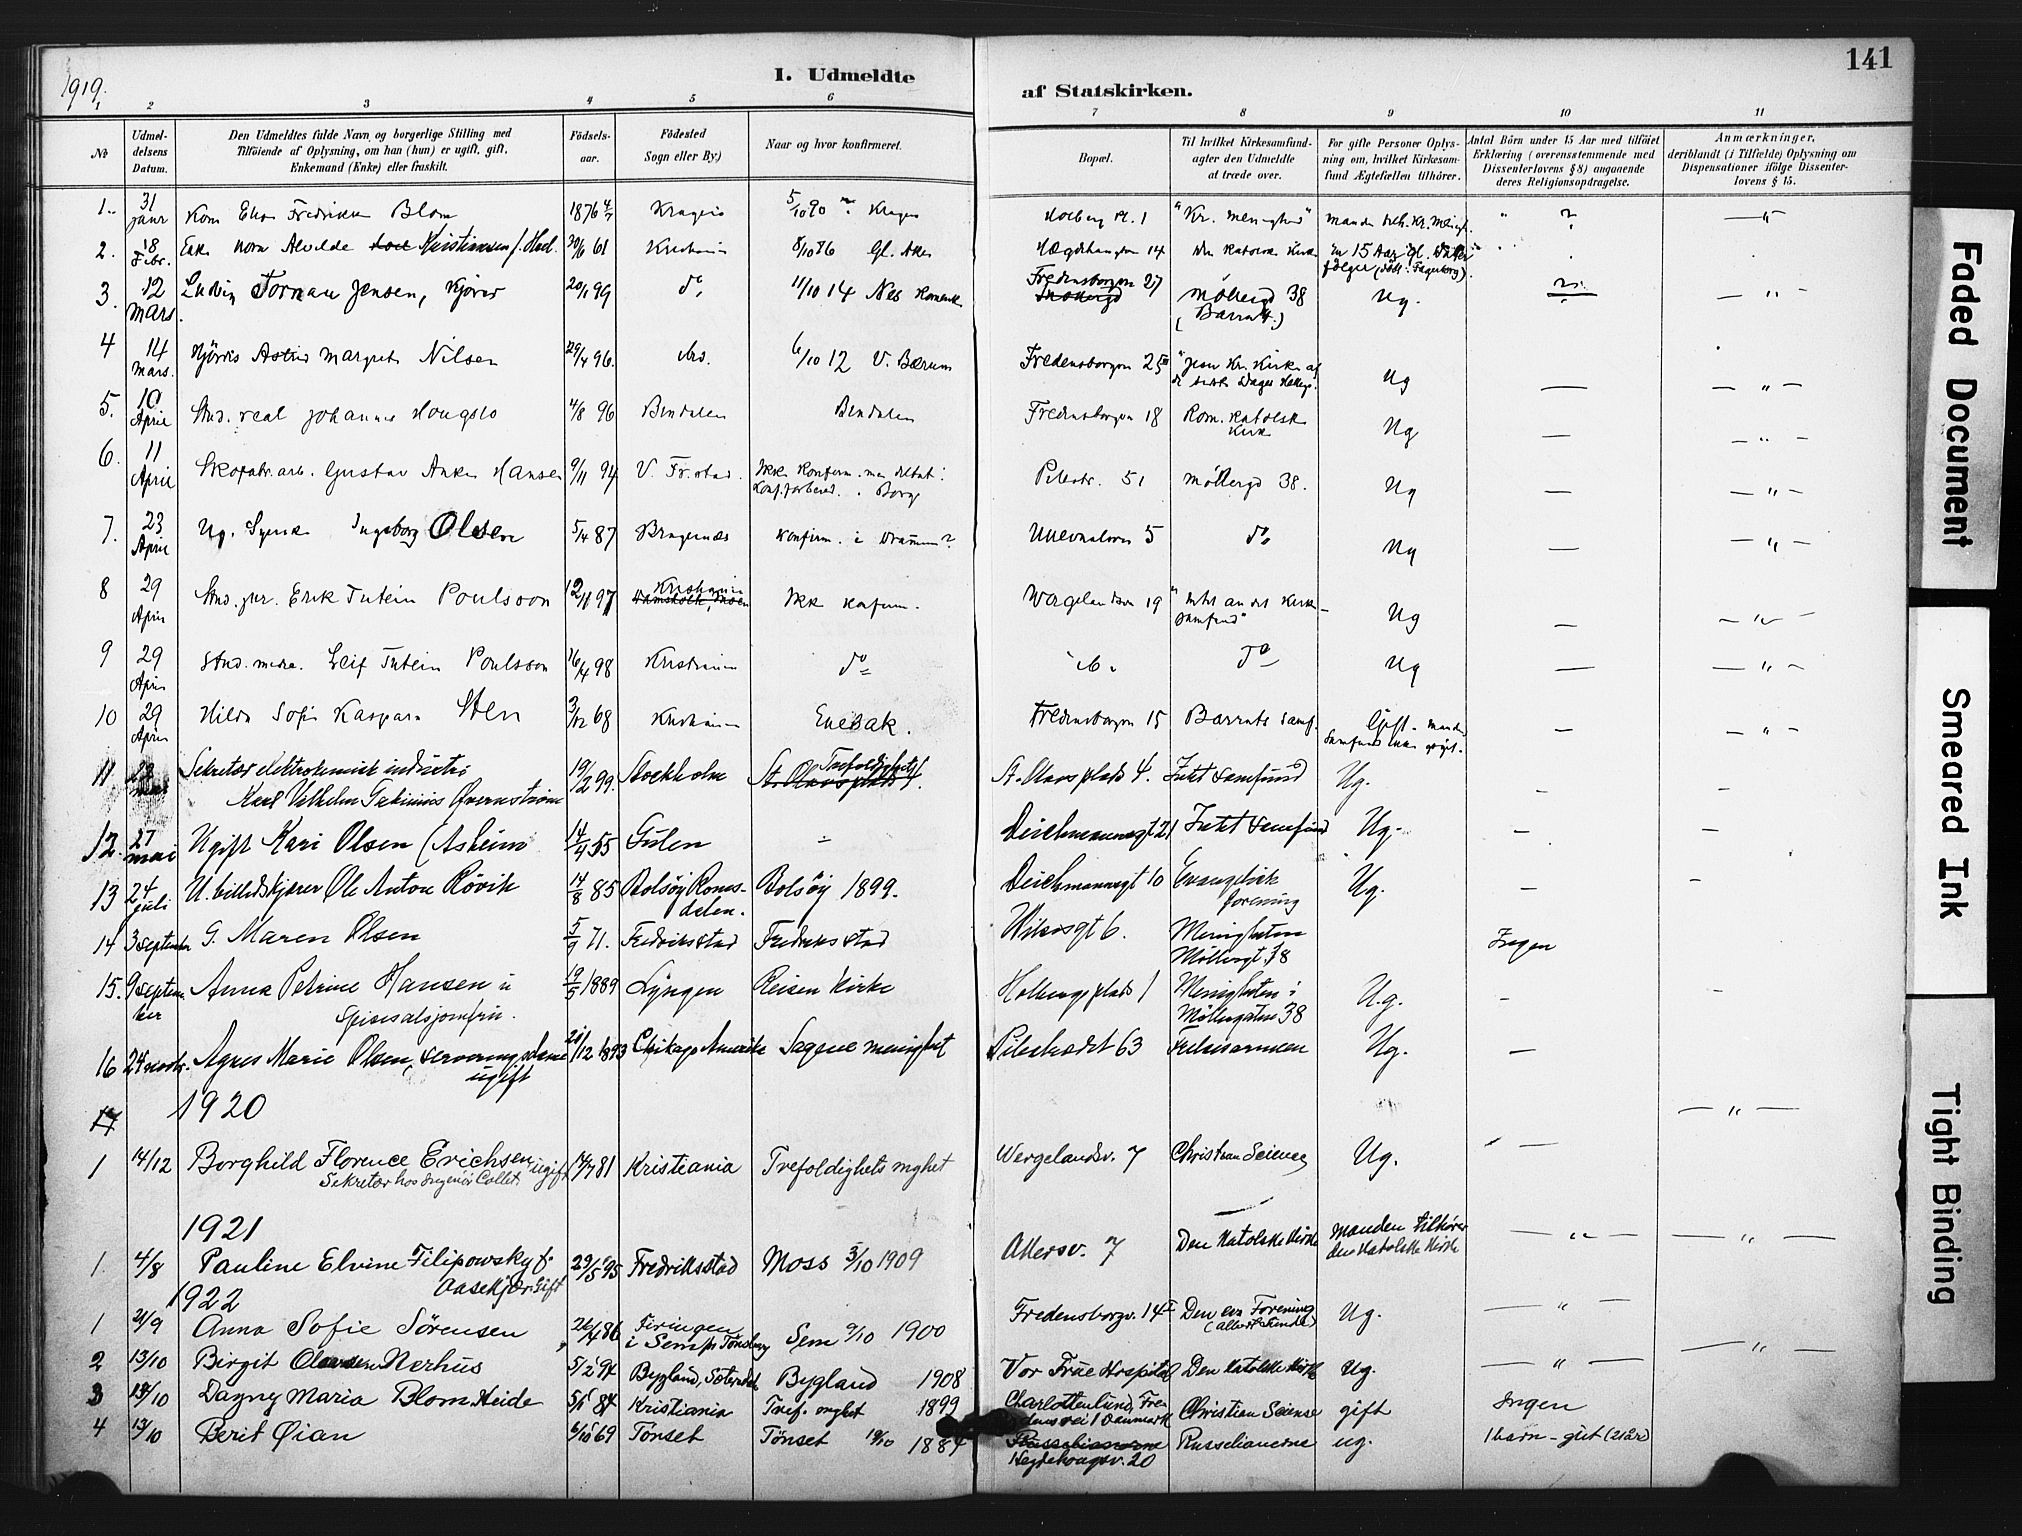 1919.
I. Udmeldte
af Statskirken.
141
1 2 3 4 5 6 7 8 9 10 11
No
Udmel-
delsens
Datum.
Den Udmeldtes fulde Navn og borgerlige Stilling med
Tilføiende af Oplysning, om han (hun) er ugift, gift,
Enkemand (Enke) eller fraskilt.
Fødsels-
aar.
Fødested
Sogn eller By)
Naar og hvor konfirmeret.
Bopæl.
Til hvilket Kirkesamfund-
agter den Udmeldte
at træde over.
For gifte Personer Oplys-
ning om, hvilket Kirkesam-
fund Ægtefællen tilhører.
Antal Börn under 15 Aar med tilføiet
Erklæring (overensstemmende med
Dissenterlovens § 8) angaaende
deres Religionsopdragelse.
Anmærkninger,
deriblandt (i Tilfælde) Oplysning om
Dispensationer ifølge Dissenter-
lovens § 15.
1. 31 Janr Fredrikke Blom 1876 4/7 Kragerø 5/10 90 Holberg pl. 1 "Kr. menighed" ?
2. 18 Febr. Alvilde Kristiansen f. 20/6 61 Kristiania 8/10 86 Gl. Aker 14 Den katolske Kirke 15 Aar gl.
følger (født: Fagerborg).
3. 12 Mars. Ludvig Tornau Jensen, Kjører 20/1 99 do 11/10 14 Nes Fredensborgvn 27 Møllergd 38 Ug.
(Barratt.)
4 14 Mars. Hjørdis Astrid Margrete Nilsen 29/4 96. 6/10 12 V. Bærum Fredensborgvn 25 "Jesu Kr. Kirke af
Ug
5. 10 April Stud. real Johannes Hougslo 4/8 96 Bindalen Bindalen Fredensborgvn 18 Rom. Katolsk
Kirke Ug
6. 11 April Skofabr.arb. Gustav Anker Hansen 9/11 94 V. Fr.stad. Ikke konfirm. men deltat i
Konf.forbered. i Borge Pilestr. 51 Møllergd 38. Ug
7. 23 April Ug. Syerske Ingeborg Olsen 5/4 87 Bragernæs Konfirm. i Drammen? Ullevoldsvn 5 do Ug
8 29 April Stud. jur. Erik Tutein Poulsson 12/11 97 Kristiania Ikke konfirm. Wergelandsvn 19 "Intet andet Kirke-
samfund" Ug
9 29 April Stud. med. Leif Tutein Poulsson 16/4 98 Kristiania do do Ug
10 29 April Hilda Sofie Kaspara Sten 3/12 68 Kristiania Enebak. Fredensborgvn 15 Barratts samf. Gift.
11 Sekretær elektrokemisk industri 19/2 99. Stockholm Trefoldighets St. Olavs plads 4. Intet samfund Ug.
Karl Vilhelm
12. 27 mai Ugift Kari Olsen (Asheim 14/4 55 Gulen Deichmannsgt 21 Intet samfund Ug.
13 24 juli U. billedskjærer Ole Anton Røvik 14/8 85 Bolsøy Roms-
dalen. Bolsøy 1899. Deichmannsgt 10 Evangelisk
forening Ug.
14 3 september G. Maren Olsen 5/9 71. Fredriksstad Fredriksstad 6. Menigheten
Møllergt. 38 Ingen
15. 9 septem
ber Anna Petrine Hansen u 19/5 1889 Lyngen Reisen Kirke Holbergsplads 1 Menigheten i
Møllergaten 38 U.g.
Spisesalsjomfru.
16 24 novbr. Agnes Marie Olsen, serveringsdame 21/12 1893 Chikago Amerika Sagene menighet Pilestrædet 63 Frelsesarmeen Ug.
ugift
17 1920
1 14/12 Borghild Florence Erichsen ugift 14/7 81 Kristiania Trefoldighets mghet Wergelandsv. 7 Christian Science Ug.
Sekretær hos Ingeniør Collett
1921
1. 4/8 Pauline Elvine Filipowsky f. 29/5 95 Fredriksstad Moss 3/10 1909 Akersv. 7 Den katolske Kirke Manden tilhører
den katolske Kirke
Aasekjær Gift
1922
1 21/9 Anna Sofie Sørensen 26/4 86 i Sem pr Tønsberg Sem 9/10 1900 Fredensborgv. 14 I Den ev. Forening
Ug.
2 13/10 Birgit Nerhus 5/2 94 Bygland, Sætersdal Bygland 1908 Vor Frue Hospital Den katolske Kirke Ug.
3 13/10 Dagny Maria Blom Heide 5/1 84 Kristiania Tref. mghet 1899 Charlottenlund, Fre
densvei 1 Danmark Christian Science gift Ingen
4 13/10 Berit Øian 6/10 69 Tönset Tönset 19/10 1884 Russelianerne
Hegdehaugsv. 20 Russelianerne ug. 1 barn - gut (21 år)
Faded Document
Smeared Ink
Tight Binding